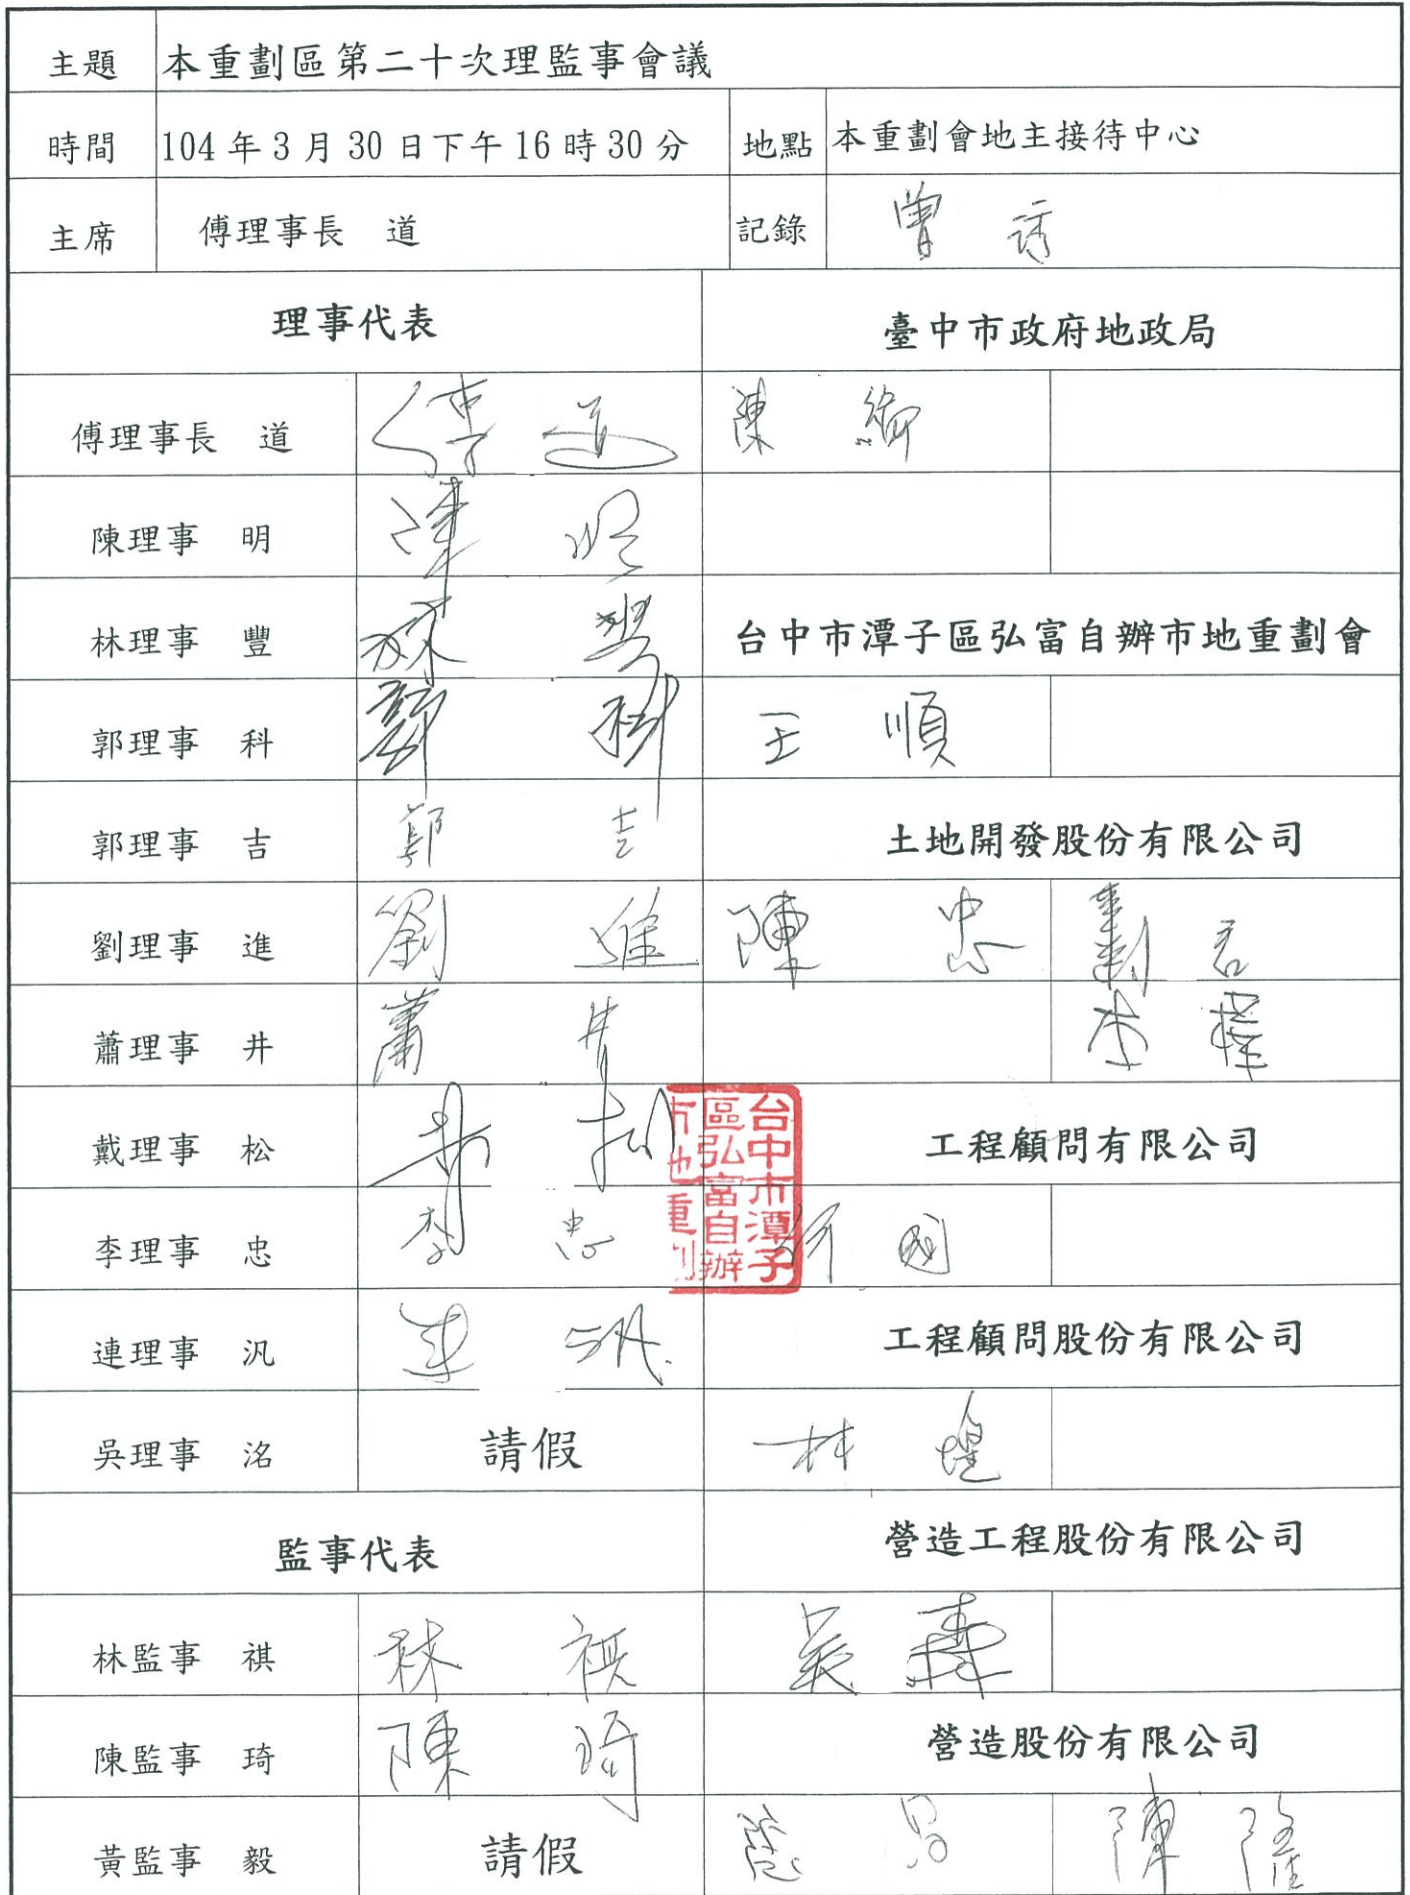 主題 本重劃區第二十次理監事會議
時間 104年3月30日下午16時30分 地點 本重劃會地主接待中心
主席 傅理事長 道 記錄 曾
理事代表 臺中市政府地政局
傅理事長 道 傅 道 陳
陳理事 明 陳 明
林理事 豐 林 豐 台中市潭子區弘富自辦市地重劃會
郭理事 科 郭 科 王 順
郭理事 吉 郭 吉 土地開發股份有限公司
劉理事 進 劉 進 陳 忠 劉
蕭理事 井 蕭 井 李
戴理事 松 松 工程顧問有限公司
李理事 忠 李 忠 國
連理事 汎 連 汎 工程顧問股份有限公司
吳理事 洺 請假 林 煌
監事代表 營造工程股份有限公司
林監事 祺 林 祺 吳 霖
陳監事 琦 陳 琦 營造股份有限公司
黃監事 毅 請假 昌 陳 隆
台中市潭子
區弘富自辦
市地重劃